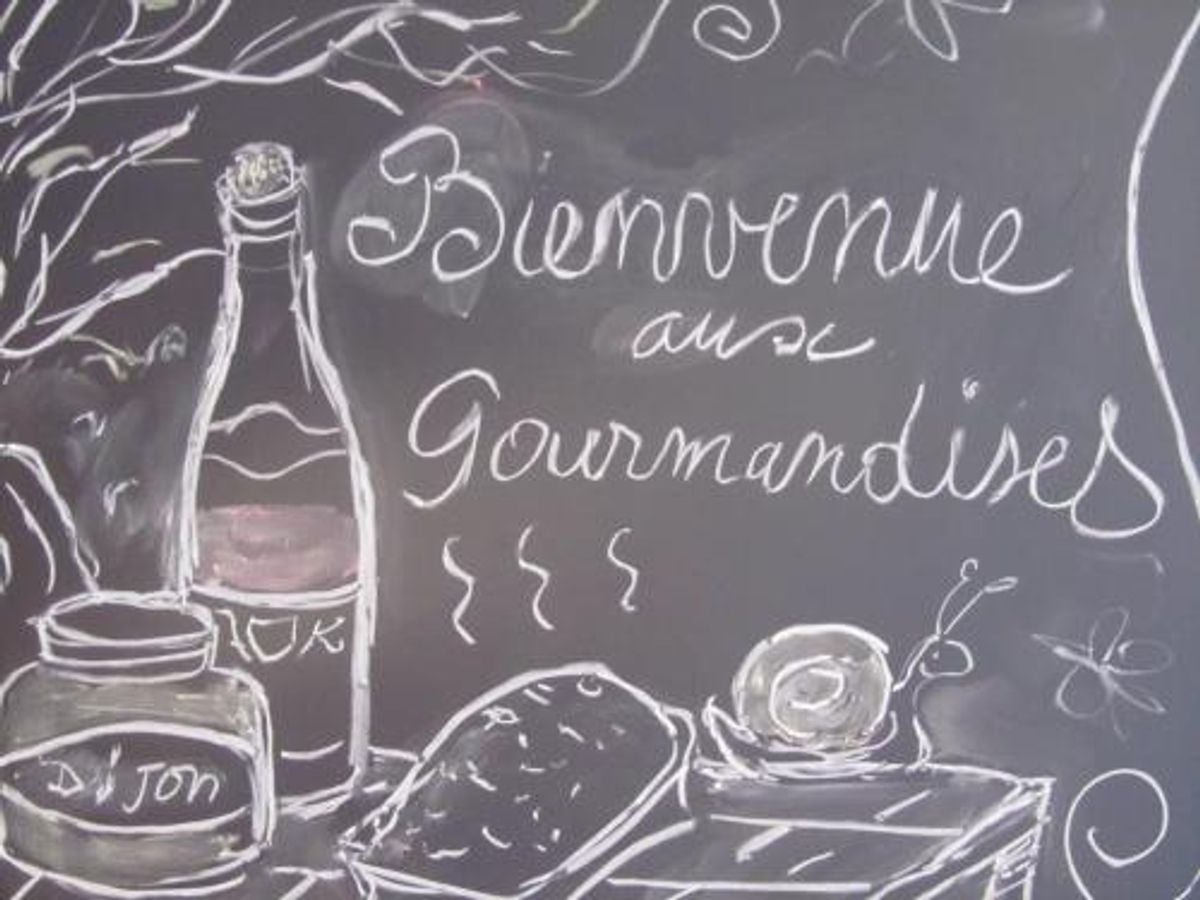 Bienvenue
aux
Gourmandises
Dijon